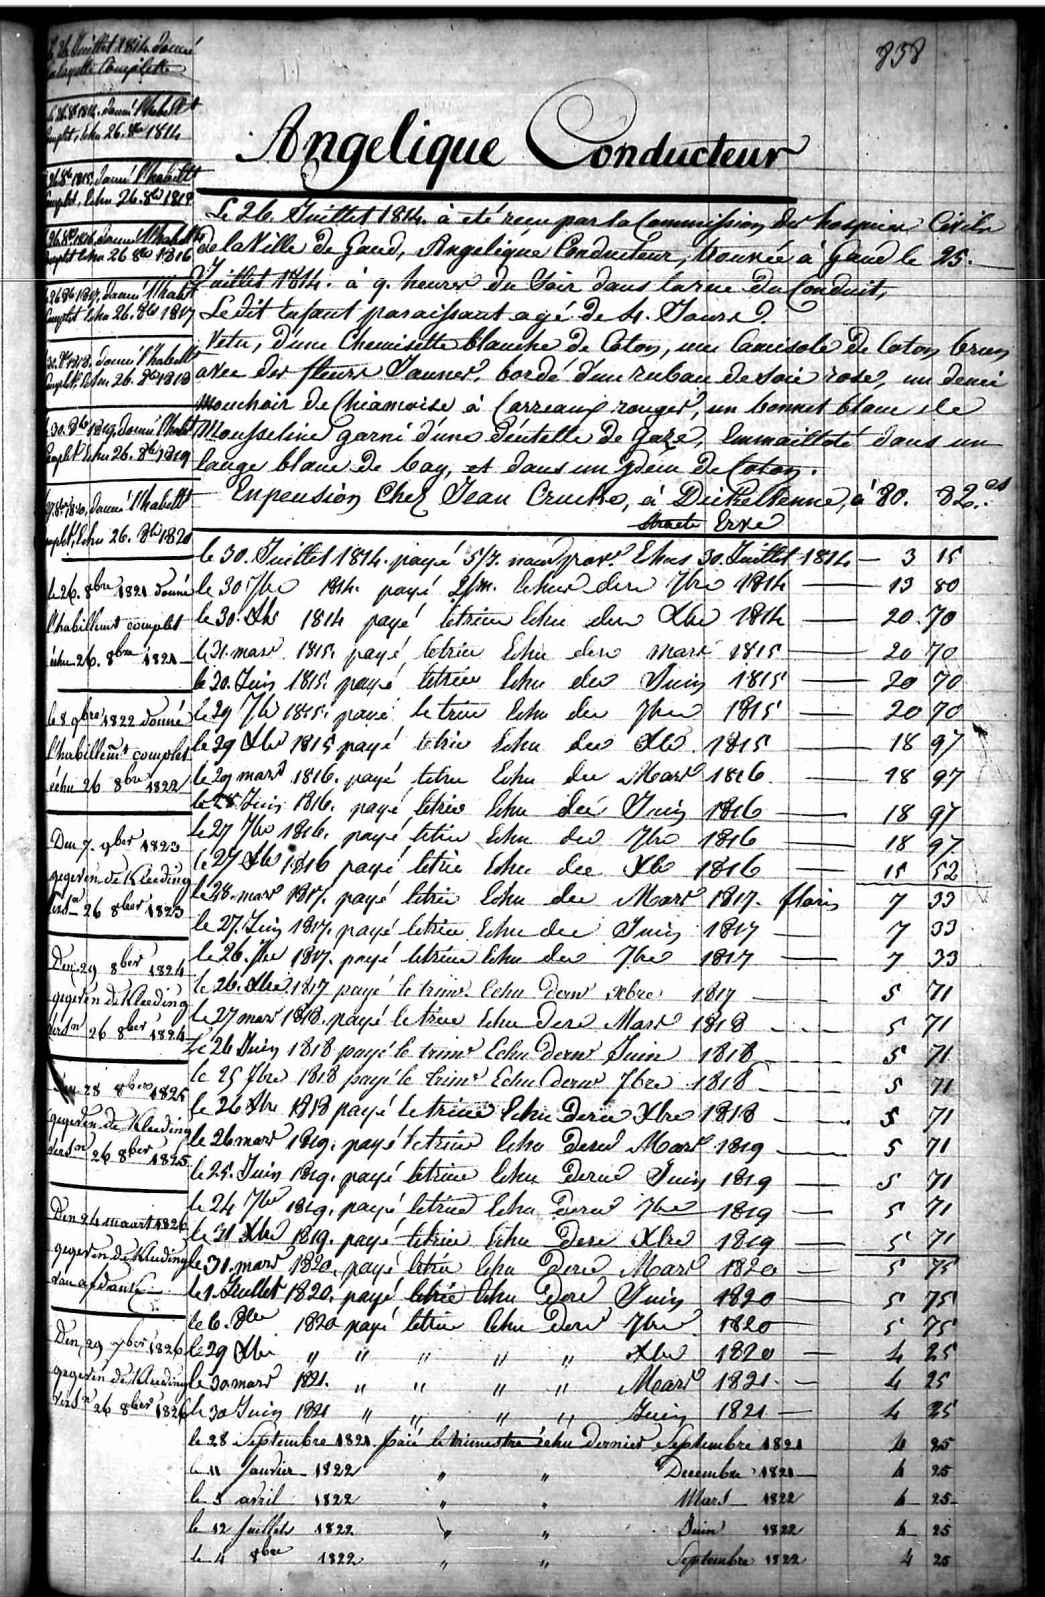 858
Angelique Conducteur
Le 26. Juillet 1814. à eté recu par la Commission des hospices Civils
de la Ville de Gand, Angelique Conducteur, trouvée à Gand le 25.
Juillet 1814. à 9. heures du Soir dans la rue du Conduit,
Ledit Enfant paraissant agé de 4. Jours.
Vetu, d'une Chemisette blanche de Coton, une Camisole de Coton brun
avec des fleurs Jaunes, bordé d'un ruban de Soie rose, un demi
mouchoir de Chiamoise à Carreaux rouges, un bonnet blanc de
Mousseline garni d'une déntelle de Gaze, Emmailloté dans un
lange blanc de bay, et dans un de Coton.
En pension Chez Jean Crucke, à Dickelvenne, à 80. 82.es
Erxe
le 30. Juillet 1814. payé Echus 30. Juillet 1814 — 3 15
le 30 7bre 1814. payé 2/m. Echus der 7bre 1814 — 13 80
le 30. Xbre 1814 payé letrim Echu der Xbre 1814 — 20. 70
le 31. mars 1815. payé letrim Echu der mars 1815 — 20 70
le 30. Juin 1815. payé letrim Echu der Juin 1815 — 20 70
le 29 7bre 1815. payé le trim Echu der 7bre 1815 — 20 70
le 29 Xbre 1815 payé letrim Echu der Xbre 1815 — 18 97
le 29 mars 1816. payé letrim Echu der Mars 1816 — 18 97
le 28. Juin 1816. payé letrim Echu der Juin 1816 — 18 97
le 27 7bre 1816. payé letrim Echu der 7bre 1816 — 18 97
le 27 Xbre 1816 payé letrim Echu der Xbre 1816 — 15 52
le 28. mars 1817. payé letrim Echu der Mars 1817. florins 7 33
le 27. Juin 1817. payé letrim Echu der Juin 1817 — 7 33
le 26. 7bre 1817. payé letrim Echu der 7bre 1817 — 7 33
le 26. Xbre 1817 payé le trim. Echu dern Xbre 1817 — 5 71
le 27 mars 1818. payé letrim Echu dern Mars 1818 — 5 71
le 26 Juin 1818 payé le trimr Echu dernr Juin 1818 — 5 71
le 25 7bre 1818 payé le trimr Echu dernr 7bre 1818 — 5 71
le 26 Xbre 1818 payé letrim Echu dern Xbre 1818 — 5 71
le 26 mars 1819. payé letrim Echu dern Mars 1819 — 5 71
le 25. Juin 1819. payé letrim Echu dern Juin 1819 — 5 71
le 24 7bre 1819. payé letrim Echu dern 7bre 1819 — 5 71
le 31 Xbre 1819. payé letrim Echu dern Xbre 1819 — 5 71
le 31. mars 1820. payé letrim Echu dern Mars 1820 — 5 75
le 1. Juillet 1820. payé letrim Echu dern Juin 1820 — 5 75
le 6. 8bre 1820 payé letrim Echu dern 7bre 1820 — 5 75
le 29 Xbre " " " " " Xbre 1820 — 4 25
le 30 mars 1821. " " " " Mars 1821 — 4 25
le 30 Juin 1821 " " " " Juin 1821 — 4 25
le 28 Septembre 1821 paié le trimestre échu dernier Septembre 1821 4 25
le 11 Janvier 1822 " " Decembre 1821 — 4 25
le 5 avril 1822 " " Mars 1822 4 25
le 12 Juillet 1822 " " Juin 1822 4 25
le 4 8bre 1822 " " Septembre 1822 4 25
26 Juillet 1814 donné
Complette
donné l'habellt
Complet, Echu 26. 8bre 1814
26 8bre 1815. donné l'habellt
Complet, Echu 26. 8bre 1815
26. 8bre 1816. donné l'habellt
Complet Echu 26 8bre 1816
26 8bre 1817. donné l'habellt
Complet Echu 26. 8bre 1817
30. 8bre 1818. donné l'habellt
Complet Echu 26. 8bre 1818
30. 8bre 1819. donné l'habellt
Complet Echu 26. 8bre 1819
8bre 1820. donné l'habellt
Complet, Echu 26. 8bre 1820
le 26. 8bre 1821 donné
l'habillemt complet
échu 26. 8bre 1821
le 8 9bre 1822 donné
l'habillemt complet
échu 26 8bre 1822
Den 7. 9ber 1823
gegeven de Kleeding
26 8ber 1823
Den 29 8ber 1824
gegeven de Kleeding
26 8ber 1824
Den 28 8ber 1825
gegeven de Kleeding
26 8ber 1825
Den 24 maart 1826
gegeven de Kleeding
Den 29 7ber 1826
gegeven de Kleeding
26 8ber 1826